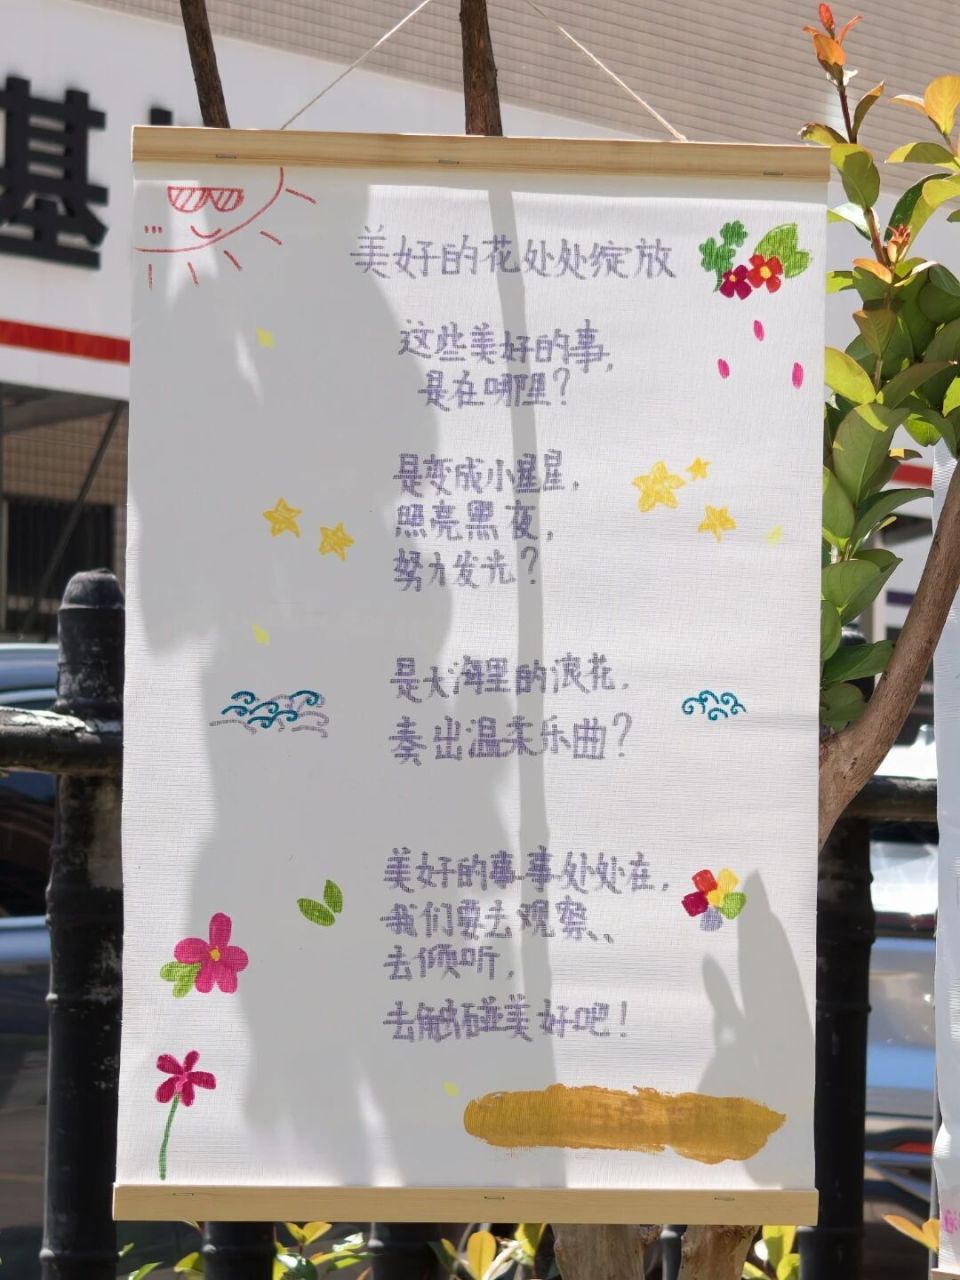 基
美好的花处处绽放
这些美好的事,
是在哪里?
是变成小星星,
照亮黑夜,
努力发光?
是大海里的浪花,
奏出温柔乐曲?
美好的事事处处在,
我们要去观察、
去倾听,
去触碰美好吧!